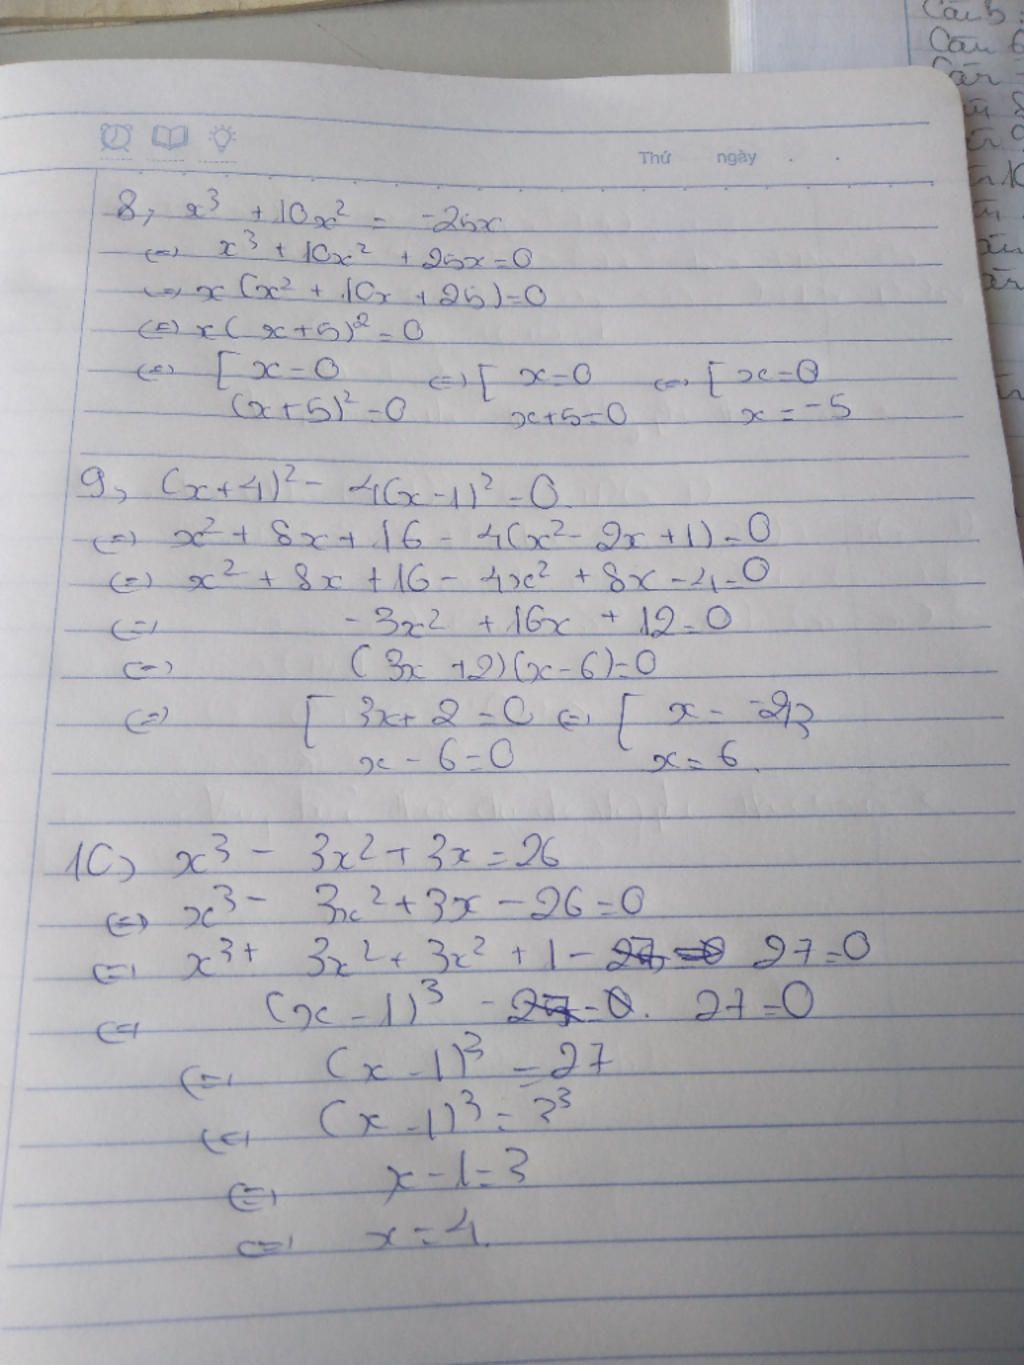 Câu 5
Câu 6
Thứ ngày . .
8, x³ + 10x² = -25x
⇔ x³ + 10x² + 25x = 0
⇔ x (x² + 10x + 25) = 0
⇔ x( x+5)² = 0
⇔ [ x = 0 ⇔ [ x = 0 ⇔ [ x = 0
(x+5)² = 0 x+5 = 0 x = -5
9, (x+4)² - 4(x-1)² = 0
⇔ x² + 8x + 16 - 4(x² - 2x + 1) = 0
⇔ x² + 8x + 16 - 4x² + 8x - 4 = 0
⇔ -3x² + 16x + 12 = 0
⇔ (3x + 2)(x - 6) = 0
⇔ [ 3x + 2 = 0 ⇔ [ x = -2/3
x - 6 = 0 x = 6
10, x³ - 3x² + 3x = 26
⇔ x³ - 3x² + 3x - 26 = 0
⇔ x³ + 3x² + 3x² + 1 - 27 = 0
⇔ (x - 1)³ - 27 = 0
⇔ (x - 1)³ = 27
⇔ (x - 1)³ = 3³
⇔ x - 1 = 3
⇔ x = 4.